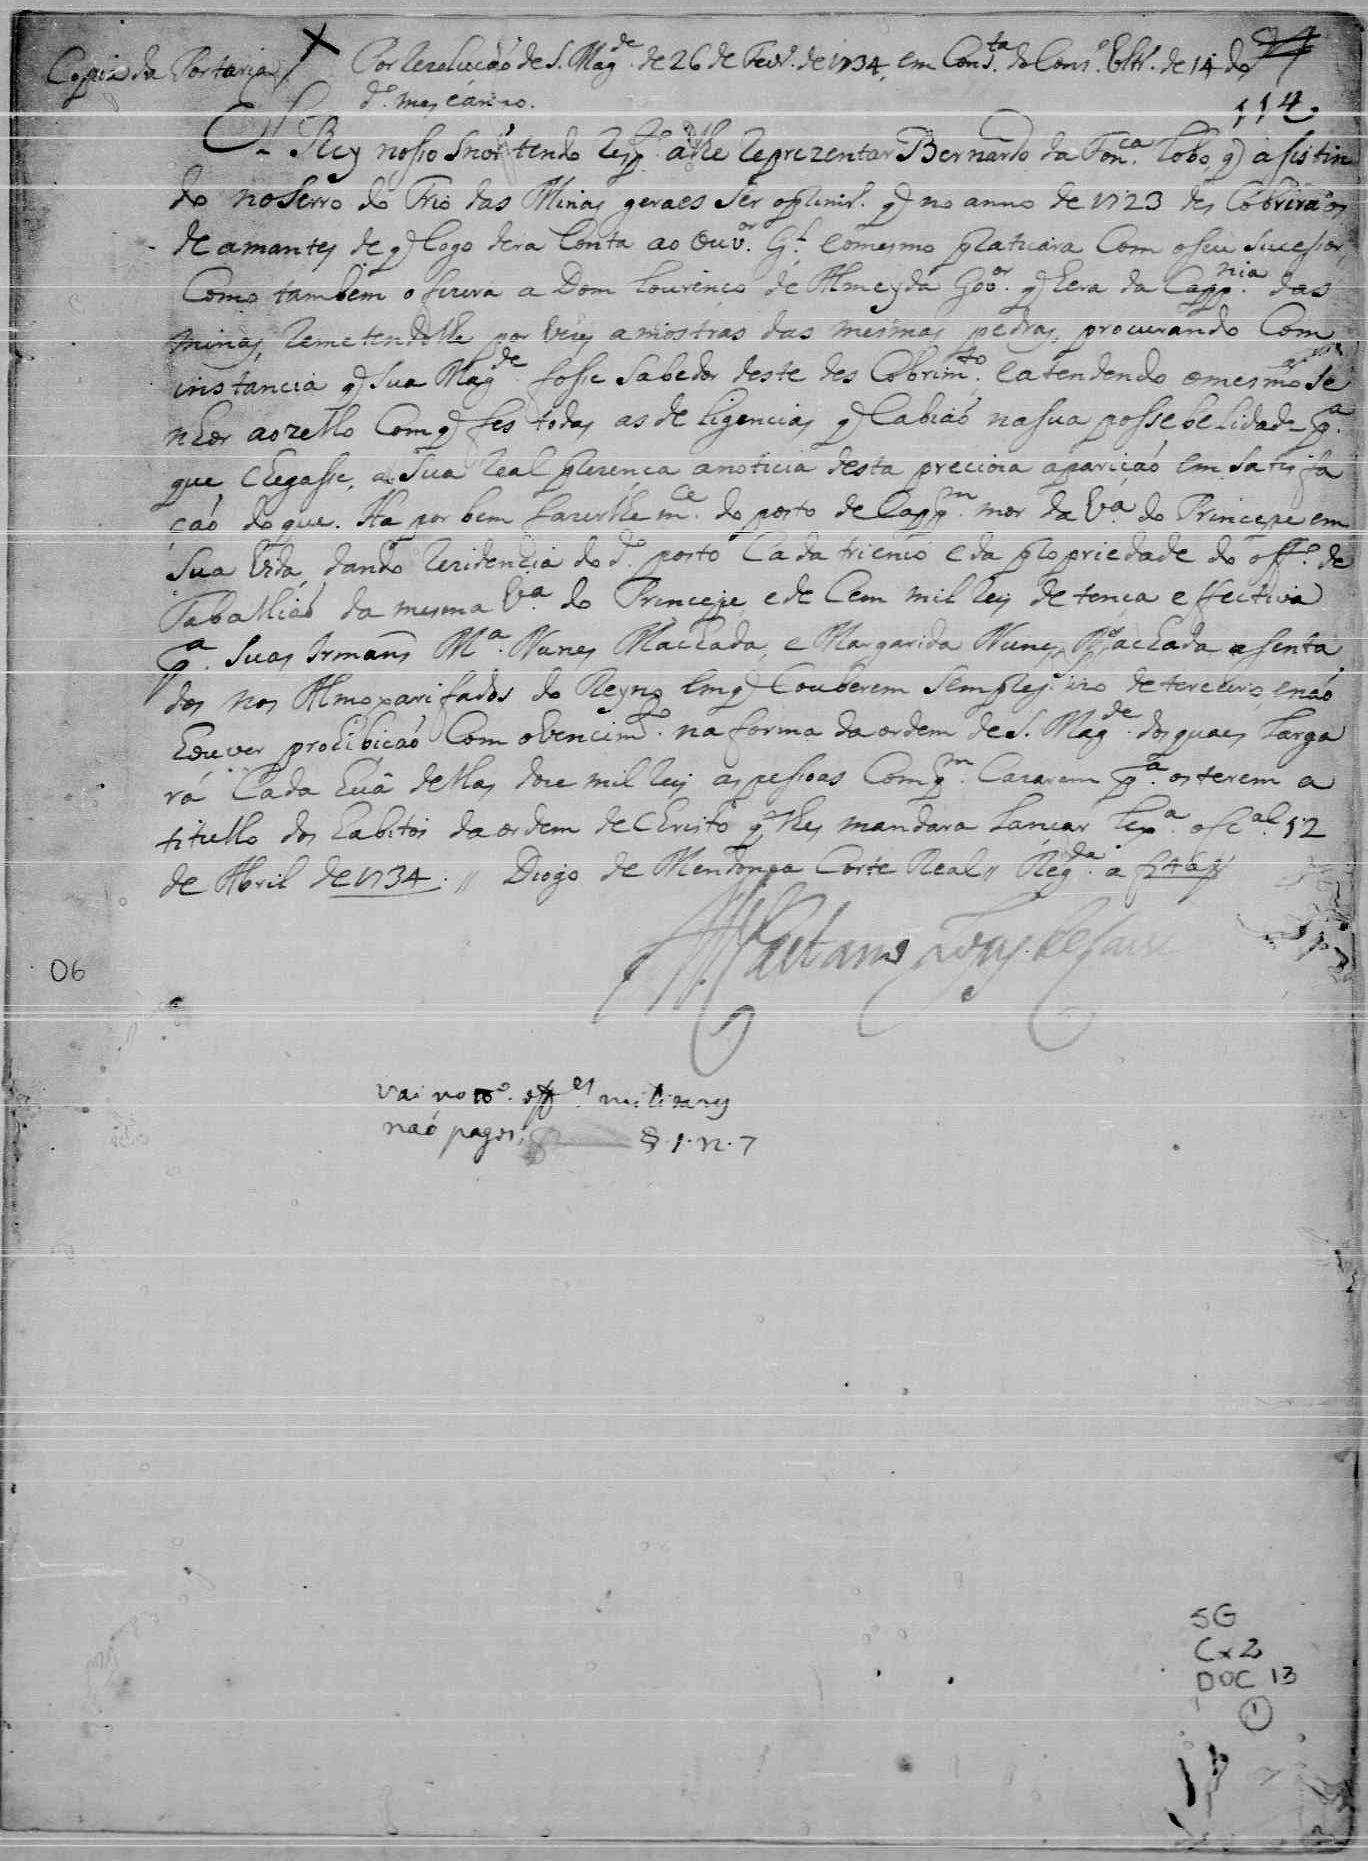 Copia da Portaria
Por Rezolução de S. Magde. de 26 de Fevro. de 1734, em Consta. do Conso. Ultro. de 14 do
do. mes e anno.
114.
El Rey nosso Snor tendo respto. a lhe reprezentar Bernardo da Fonca. Lobo, q asistin
do no Serro do Frio das Minas geraes ser o primro. q no anno de 1723 des Cobrira os
deamantes de q logo dera Conta ao Ouvor. Gl. e o mesmo platicara Com o seu sucessor,
Como tambem o fizera a Dom Lourenço de Almeyda Govor. q hera da Cappnia. das
minas, remetendolhe por vezes amostras das mesmas pedras, procurando Com
instancia q Sua Magde. fosse Sabedor deste des Cobrimto. e atendendo o mesmo Se
nhor ao zello Com q fes todas as deligencias q Cabião na sua possebelidade pa.
que chegasse, a Sua real prezença a noticia desta precioza aparição em satisfa
ção do que. Ha por bem fazerlhe mce. do posto de Cappm. mor da Va. do Princepe em
Sua Vida, dando rezidencia do do. posto Cada trienio e da propriedade do offo. de
Taballião da mesma Va. do Princepe, e de Cem mil reis de tença effectiva
pa. Suas Irmans Ma. Nunes Machada, e Margarida Nunes Machada asenta
dos nos Almoxarifados do Reyno em q Couberem sem prejuizo de terceiro, e não
houver prohibição Com o vencimto. na forma da ordem de S. Magde. dos quaes Larga
rá Cada huã dellas doze mil reis as pessoas Com qm. Cazarem pa. os terem a
titullo dos habitos da ordem de Christo q lhes mandara Lançar Lixa. ocal. 12
de Abril de 1734. // Diogo de Mendonça Corte Real // Regda. a f
06
vai no offes militares
não pagos, §. 1. n. 7
SG
Cx 2
DOC 13
1